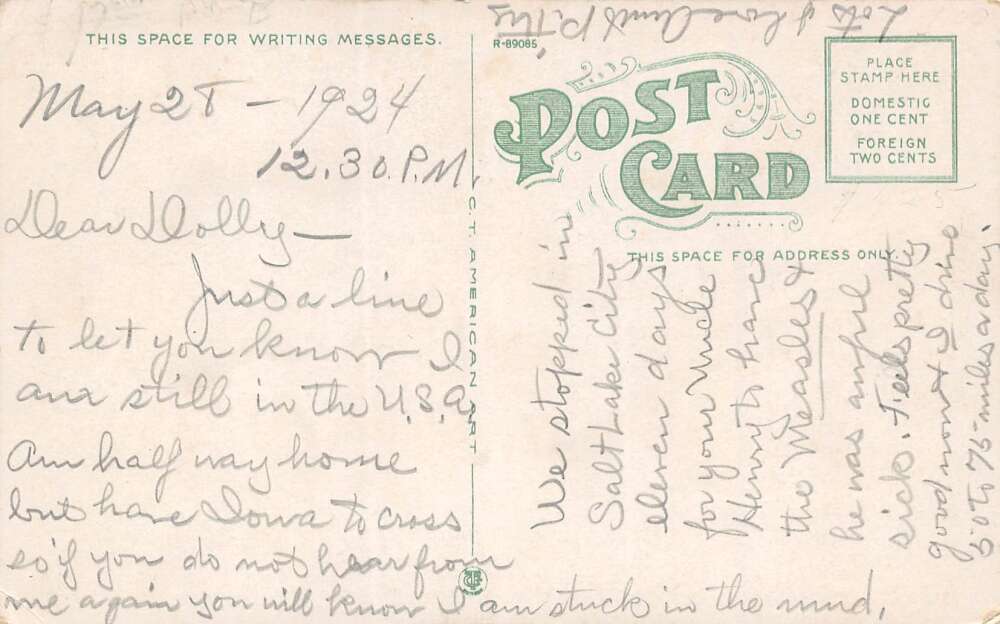 THIS SPACE FOR WRITING MESSAGES.
May 28 - 1924
12.30 P.M.
Dear Dolly —
Just a line
to let you know I
am still in the U.S.A.
Am half way home
but have Iowa to cross
so if you do not hear from
me again you will know I am stuck in the mud,
C.T. AMERICAN ART
R-89085
POST
CARD
PLACE
STAMP HERE
DOMESTIC
ONE CENT
FOREIGN
TWO CENTS
THIS SPACE FOR ADDRESS ONLY.
We stopped in
Salt Lake City
eleven days
for your Uncle
Henry to have
the Measles &
he was awful
sick. Feels pretty
good now & I drive
50 to 75 miles a day.
Lots of love Aunt